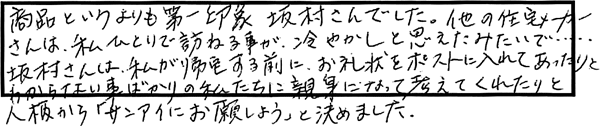 商品というよりも第一印象 坂村さんでした。他の住宅メーカー
さんは、私ひとりで訪ねる事が、冷やかしと思えたみたいで……
坂村さんは、私が帰宅する前に、お礼状をポストに入れてあったりと
わからない事ばかりの私たちに親身になって考えてくれたりと
人柄から「サンアイにお願しよう」と決めました.